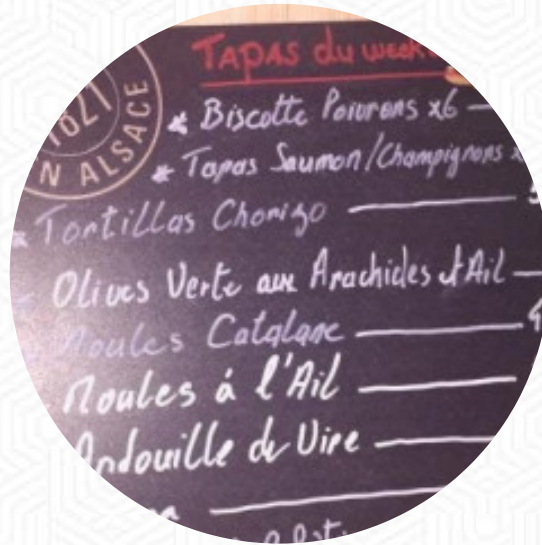 TAPAS du week
1621
N ALSACE
* Biscotte Poivrons x6
* Tapas Saumon/Champignons x
* Tortillas Chorizo
Olives Verte aux Arachides d'Ail
Moules Catalane
Moules á l'Ail
Andouille de Vire